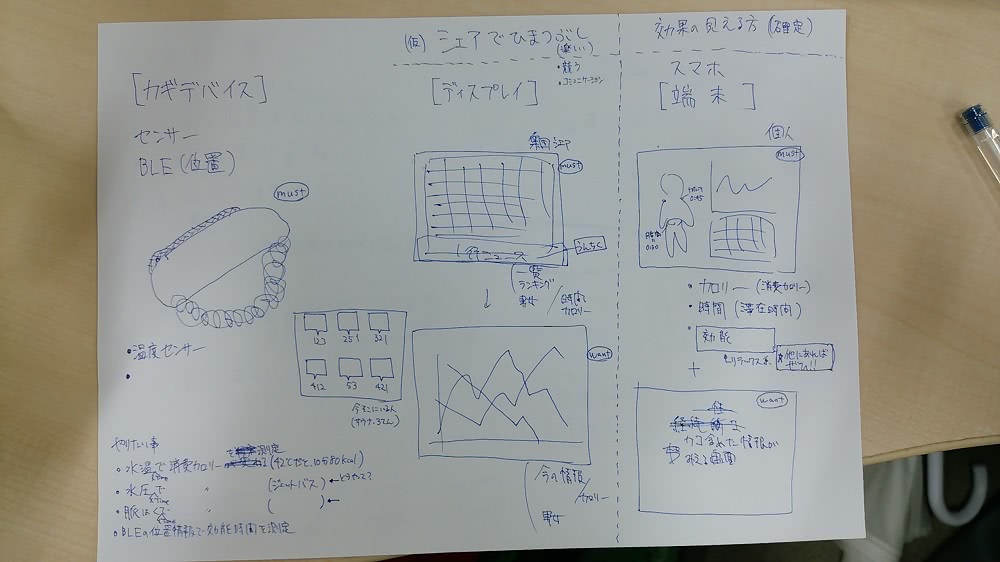 (仮) シェアでひまつぶし
(楽しい)
・競う
・コミュニケーション
効果の見える方(確定)
[カギデバイス]
[ディスプレイ]
スマホ
[端末]
センサー
BLE(位置)
must
・温度センサー
・
集団シェア
must
1行ニュース
うんちく
一覧
ランキング
男女
時間
カロリー
↓
123 251 321
412 53 421
今そこにいる人
(サウナ、3てん)
want
今の情報
カロリー
男女
個人
must
・カロリー(消費カロリー)
・時間(滞在時間)
・効能
リラックス系
他にあれば
ぜひ!!
+
want
カコ含めた情報が
みえる画面
やりたい事
・水温で消費カロリー
測定
(42℃だと、10分80kcal)
×time
・水圧で 〃 (ジェットバス)←どうやって?
×time
・脈はくで 〃 ( )←
×time
・BLEの位置情報で効能時間を測定